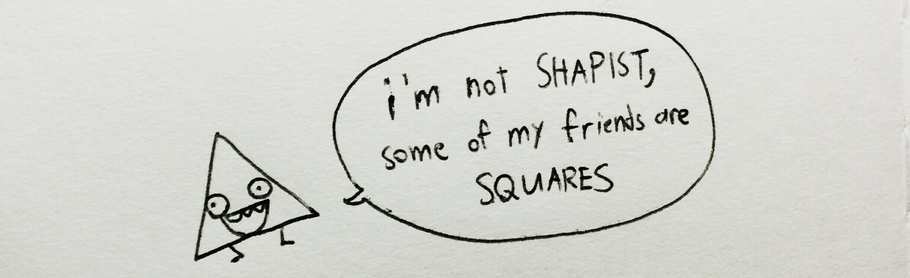 i'm not SHAPIST,
some of my friends are
SQUARES